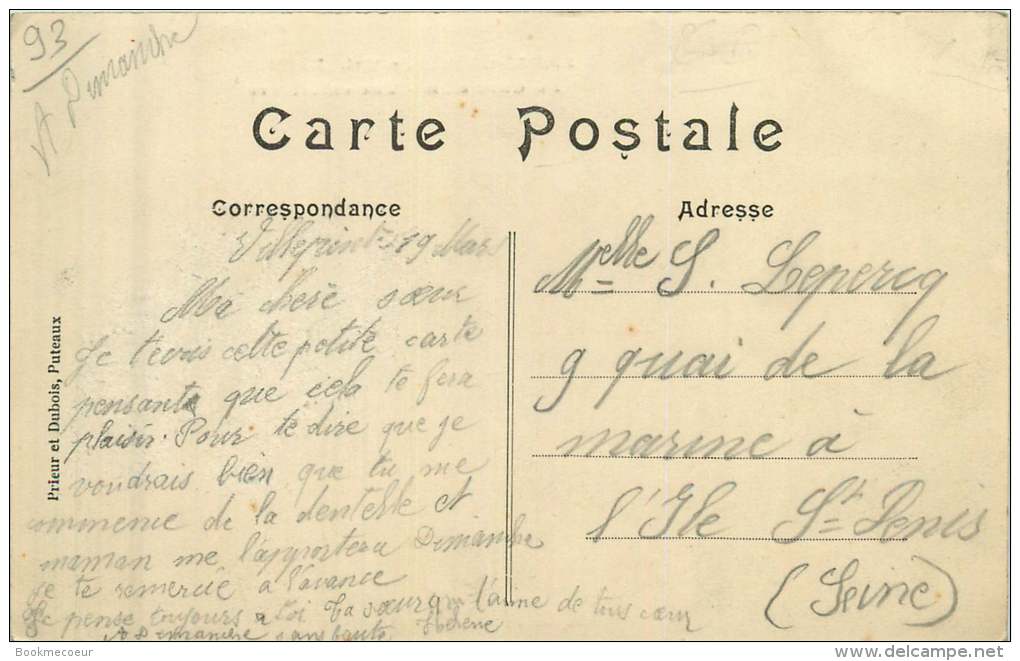 93
A Dimanche
Carte Postale
Correspondance
Adresse
Villepinte 19 Mars
Ma chere sœur
Je tevois cette petite carte
pensante que cela te fera
plaisir. Pour te dire que je
voudrais bien que tu me
commence de la dentelle et
maman me l'apportera Dimanche
Je te remercie a l'avance
Je pense toujours a toi ta sœur qui l'aime de tous cœur
A Dimanche sans faute Hélène
Melle S. Lepercq
9 quai de la
marine à
l'Ile St Denis
(Seine)
Prieur et Dubois, Puteaux
Bookmecoeur
delcampe.net